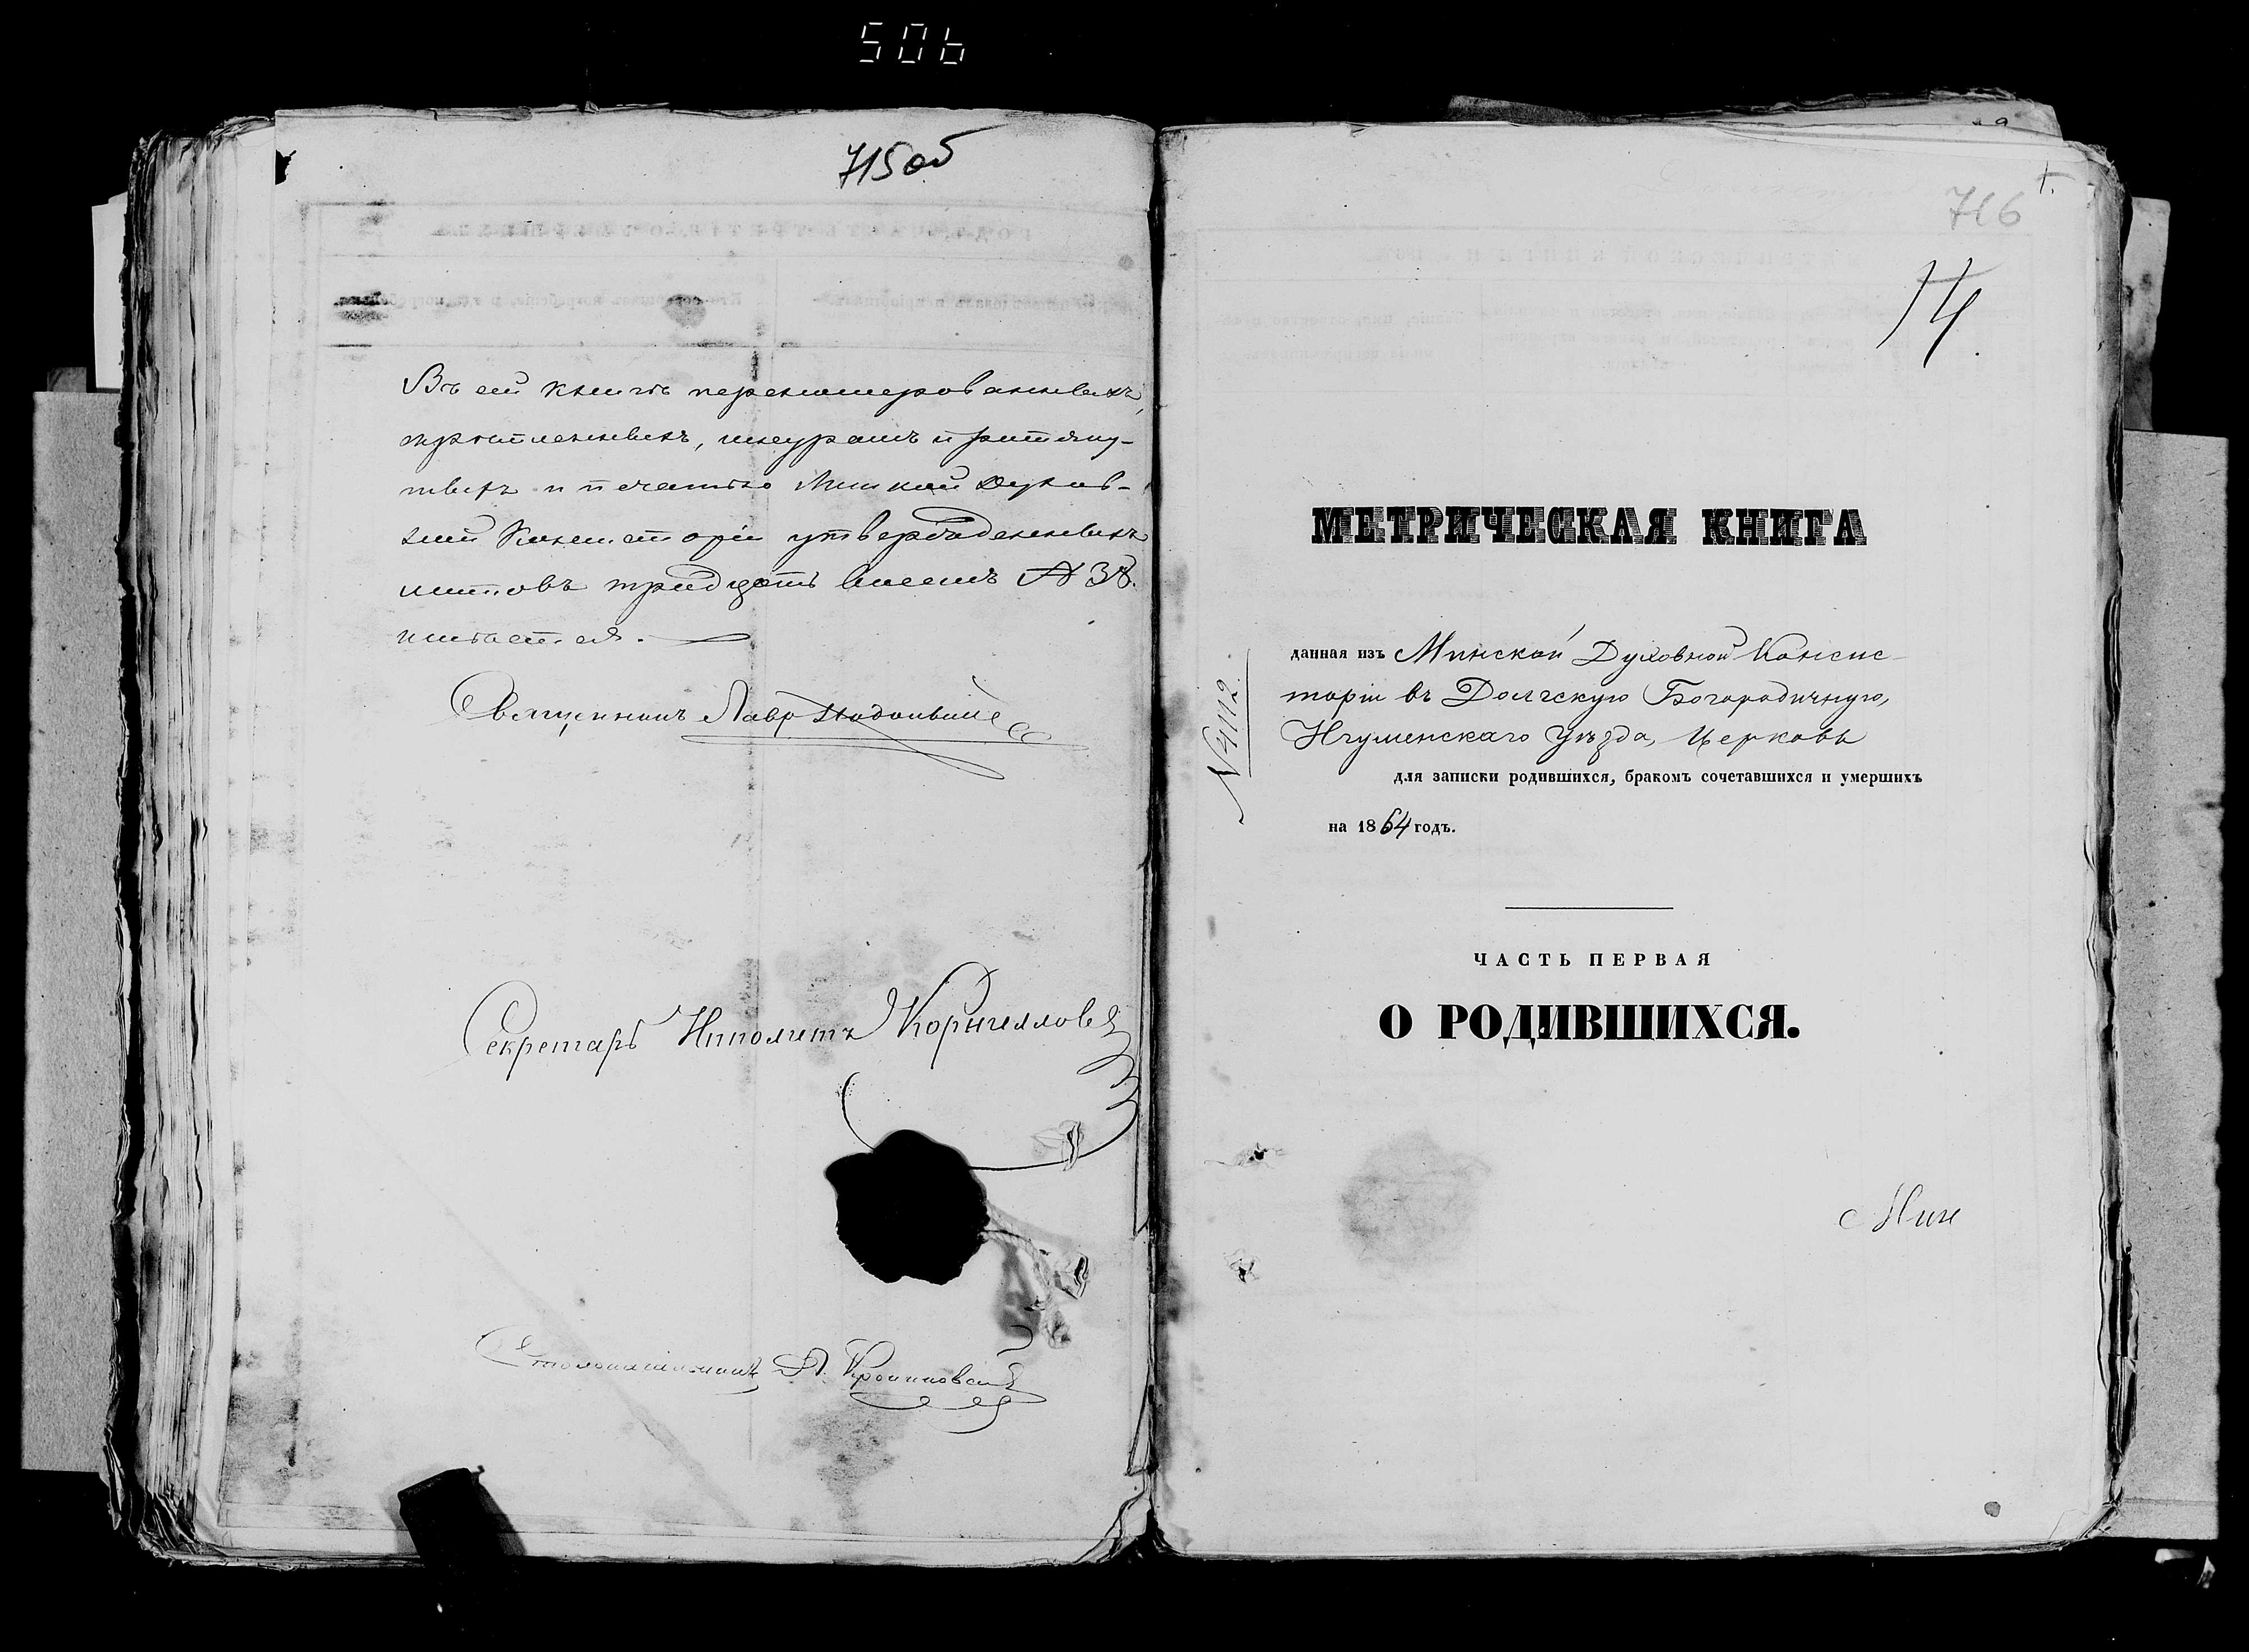 506
715об
Въ сей книгѣ перенумерованныхъ,
скрѣпленныхъ, шнуромъ и
и печатью Минской Духов-
ной Консисторіи утвержденныхъ
листовъ тридцать восемь № 38.
имѣется.
Священникъ Лавр
Секретарь Иполитъ Корниллов
Столоначальникъ
1.
716
14.
МЕТРИЧЕСКАЯ КНИГА
данная изъ Минской Духовной Консис-
торіи въ Долгскую Богородичную,
Игуменскаго Уѣзда, Церковь
для записки родившихся, бракомъ сочетавшихся и умершихъ
на 1864 годъ.
№ 4112.
ЧАСТЬ ПЕРВАЯ
О РОДИВШИХСЯ.
Мин